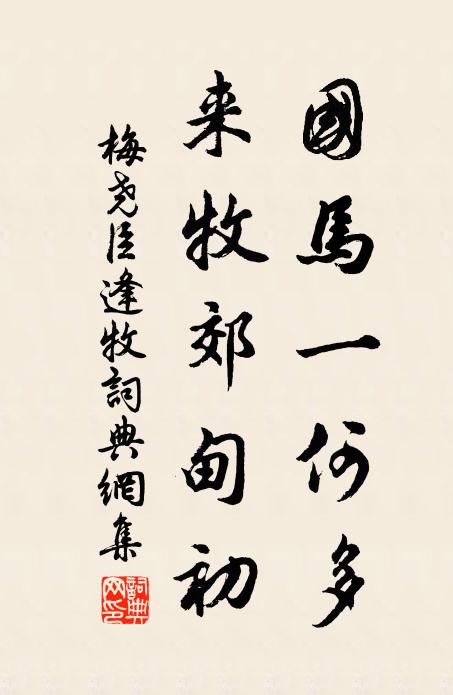 國馬一何多
来牧郊甸初
梅堯臣逢牧詞典網集
詞典網印